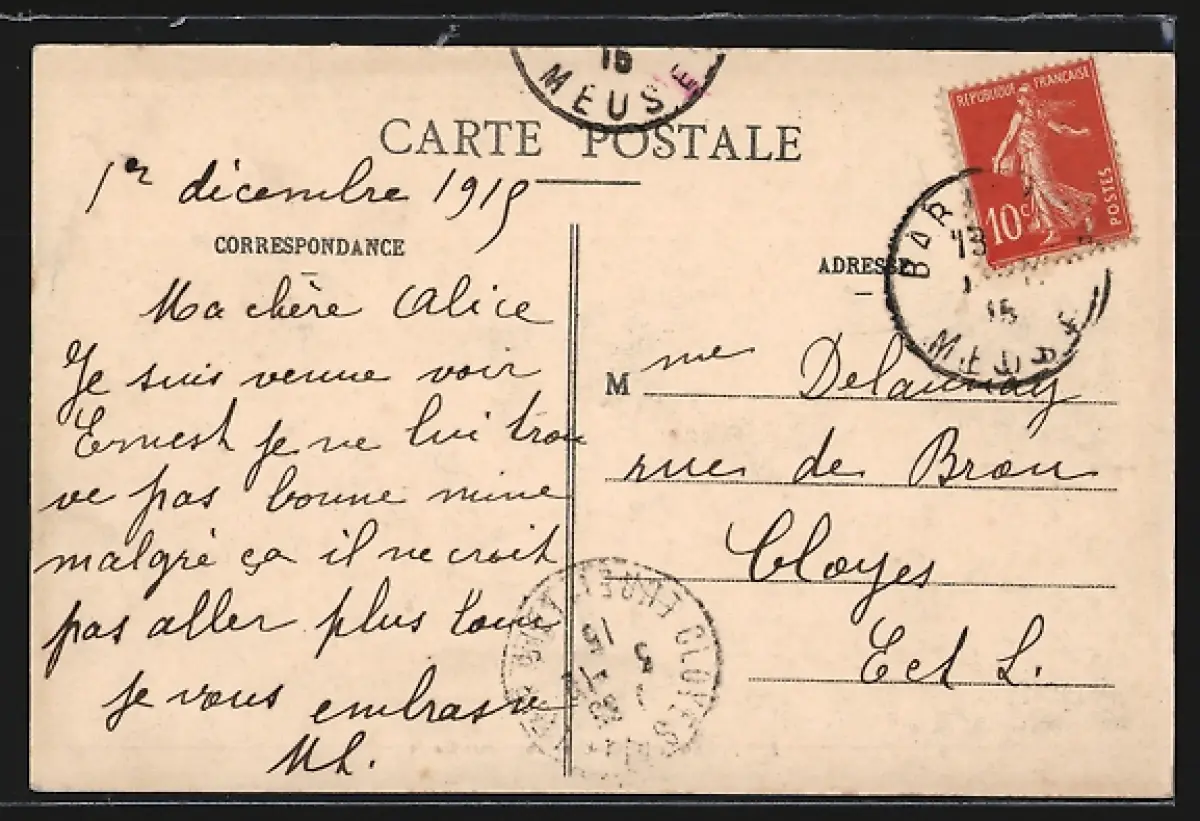 15
MEUSE
CARTE POSTALE
REPUBLIQUE FRANÇAISE
10c
POSTES
1er décembre 1915
CORRESPONDANCE
Ma chère Alice
Je suis venue voir
Ernest je ne lui trou
ve pas bonne mine
malgré ça il ne croit
pas aller plus loin
je vous embrasse
ML.
ADRESSE
BAR
13
15
MEUSE
M me Delaunay
rue de Brou
Cloyes
E et L.
CLOYES
15